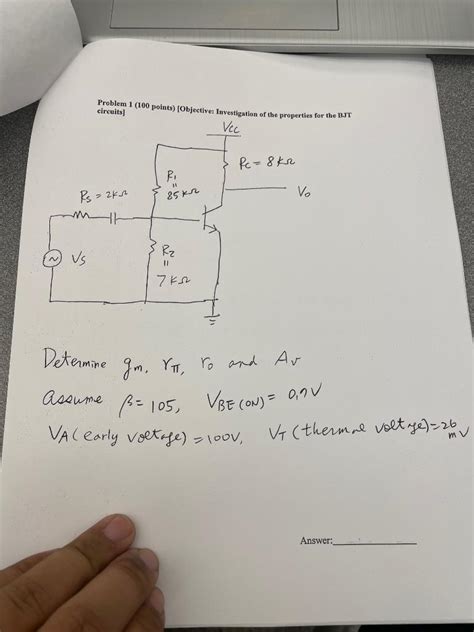 Problem 1 (100 points) [Objective: Investigation of the properties for the BJT
circuits]
Vcc
Rc = 8 kΩ
R1
=
85 kΩ
Rs = 2kΩ
Vo
Vs
~
R2
=
7 kΩ
Determine gm, rπ, ro and Av
assume β = 105, VBE (ON) = 0,7V
VA (early voltage) = 100V, VT (thermal voltage) = 26 mV
Answer: